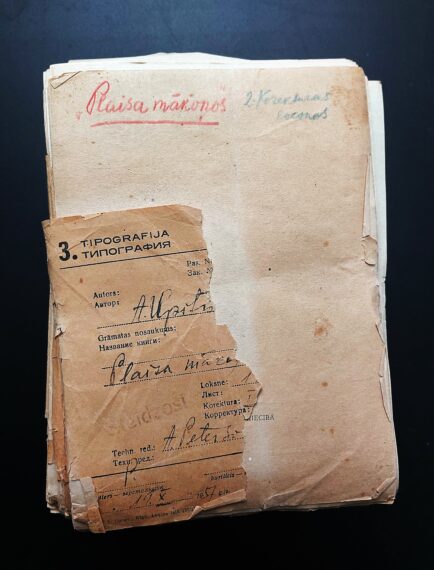 „Plaisa mākoņos"
2. Korektūras
3. TIPOGRAFIJA
ТИПОГРАФИЯ
Pas. N
Зак. №
Autors:
Автор:
A. Upītis
Grāmatas nosaukums:
Название книги:
Plaisa māko
Loksne:
Лист:
Korektūra:
Корректура:
NIECĪBA
Techn. red.:
Техн. ред.:
A. Peters